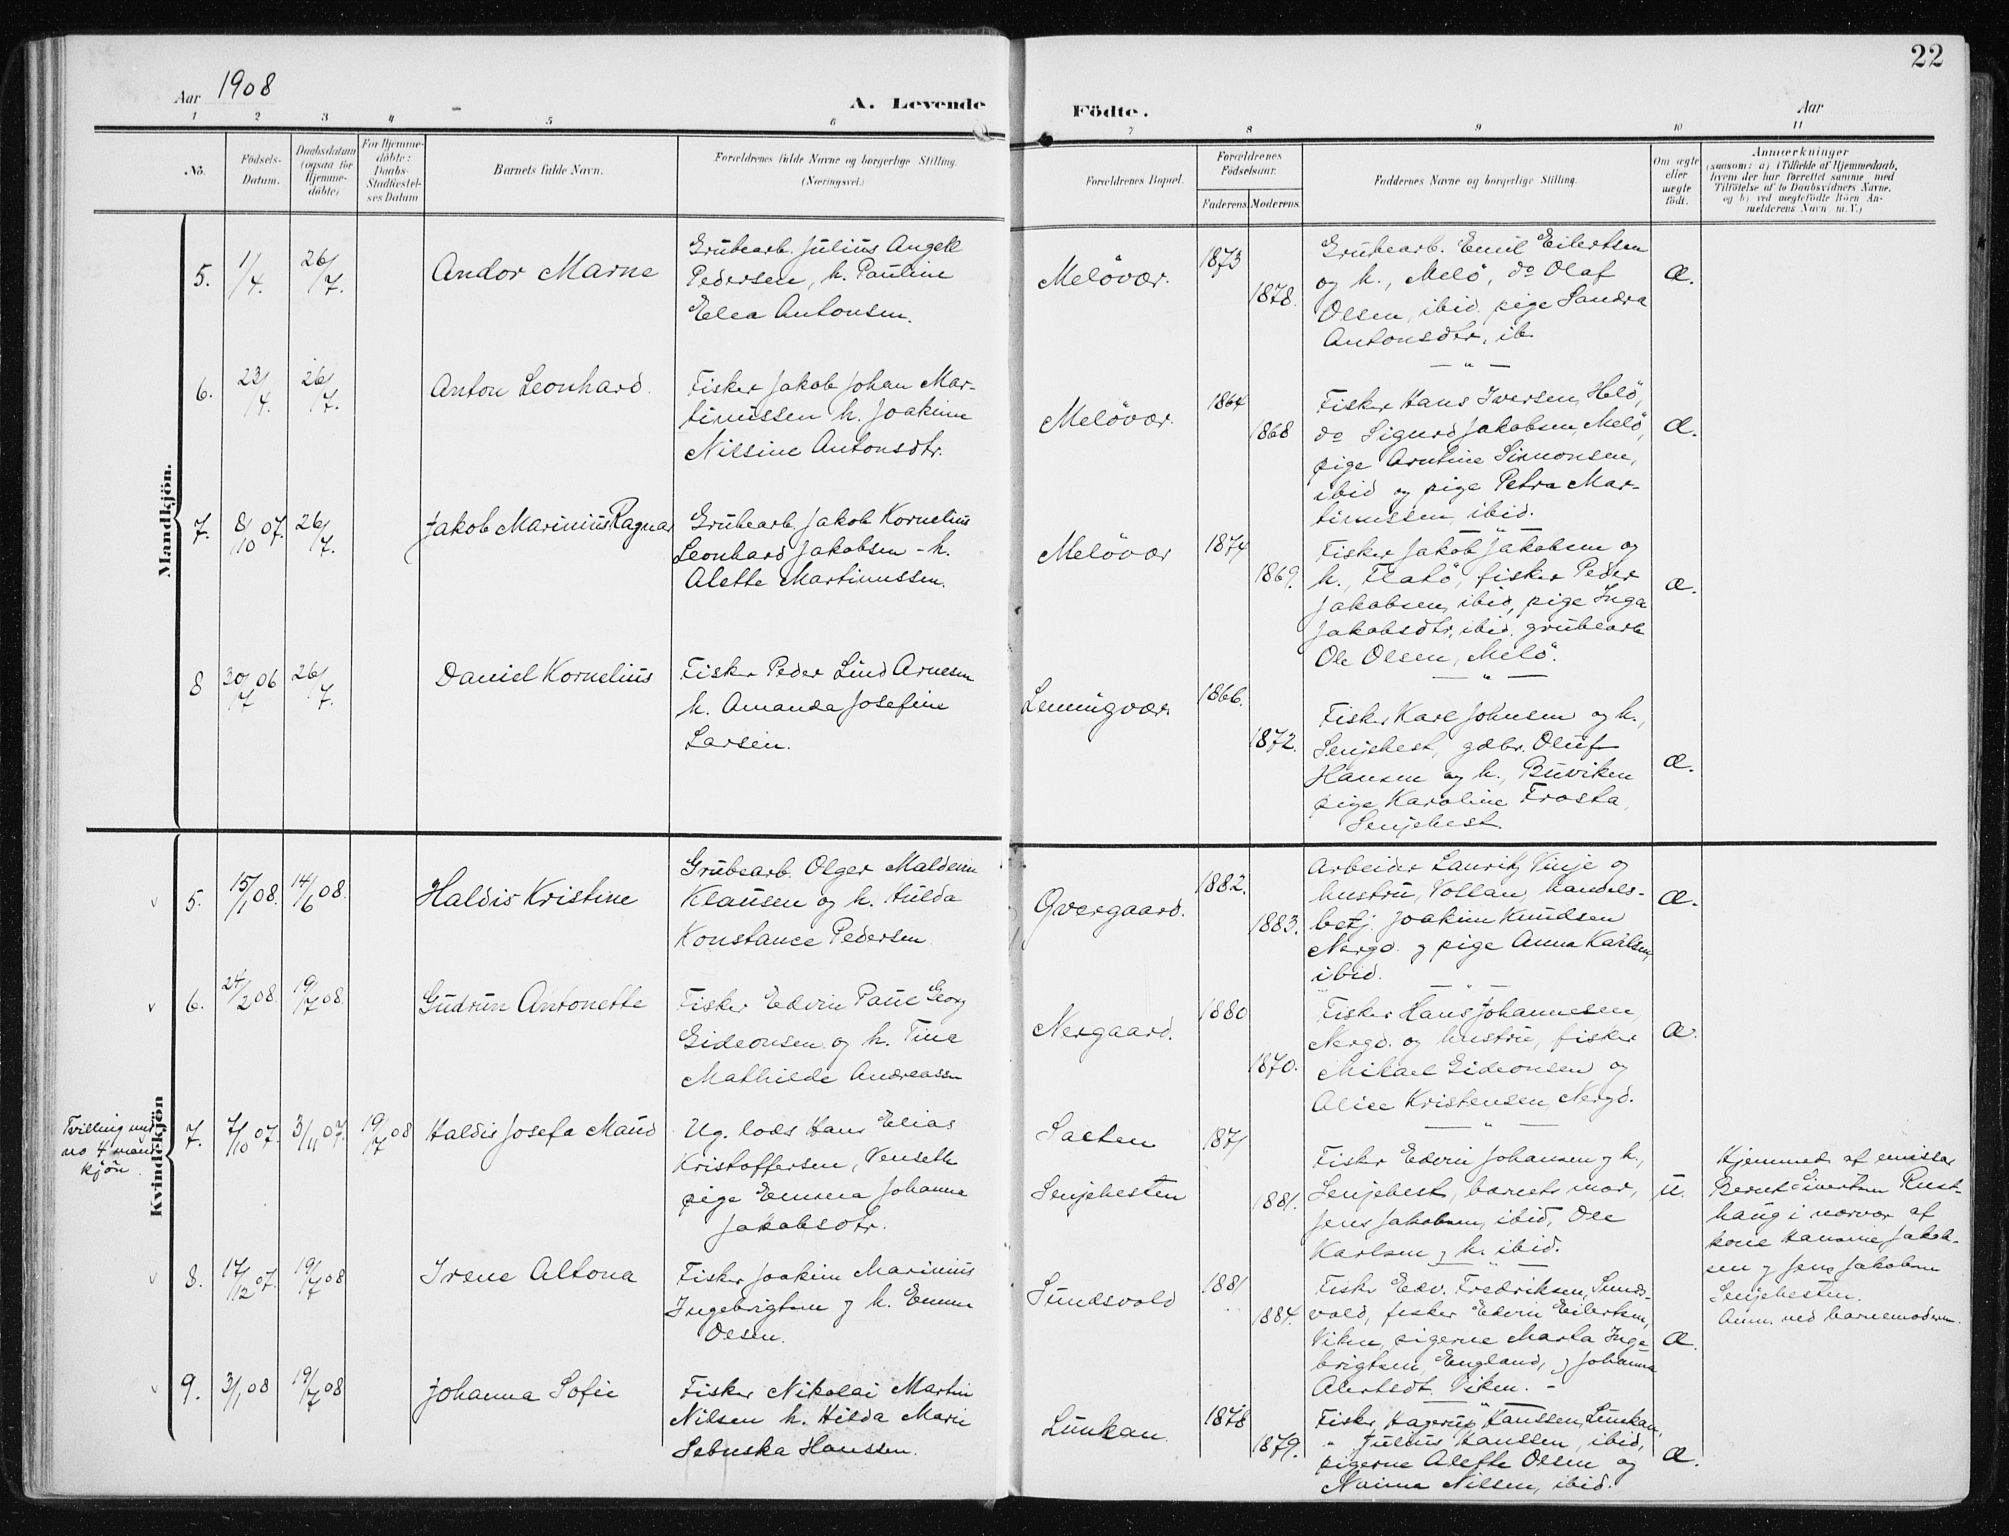 22
Aar 1908
A. Levende
Födte.
Aar
1 2 3 4 5 6 7 8 9 10 11
No.
Födsels-Datum.
Daabsdatum (ogsaa for Hjemme-döbte)
For Hjemme-döbte: Daabs-Stadfæstel-ses Datum
Barnets fulde Navn.
Forældrenes fulde Navne og borgerlige Stilling. (Næringsvei.)
Forældrenes Bopæl.
Forældrenes Födselsaar.
Faderens. Moderens.
Faddernes Navne og borgerlige Stilling.
Om ægte eller uægte födt.
Anmærkninger
(saasom: a) i Tilfælde af Hjemmedaab,
hvem der har forrettet samme med
Tilföielse af to Daabsvidners Navne,
og b) ved uægtefödte Börn An-
melderens Navn m. V.)
Mandkjön.
5. 1/4. 26/7. Andor Marne
Grubearb. Julius Angell
Pedersen, h. Pauline
Elea Antonsen.
Melövær. 1873 1878.
Grubearb. Emil Eilertsen
og h., Melö, do Olaf
Olsen, ibid. pige Sandra
Antonsdtr., ib.
Æ.
6. 23/4. 26/7. Anton Leonhard.
Fisker Jakob Johan Mar-
tinussen h. Joakine
Nilsine Antonsdtr.
Melövær. 1864 1868
Fisker Hans Iversen, Holö,
do Sigurd Jakobsen, Melö,
pige Arntine Simonsen,
ibid og pige Petra Mar-
tinussen, ibid.
Æ.
7. 8/10 07. 26/7. Jakob Marinius Ragnar
Grubearb. Jakob Kornelius
Leonhard Jakobsen - h.
Alette Martinussen.
Melövær 1874 1869.
Fisker Jakob Jakobsen og
h., Flatö, fisker Peder
Jakobsen, ibid, pige Inga
Jakobsdtr, ibid. grubearb
Ole Olsen, Melö.
Æ.
8 30/7 06 26/7. Daniel Kornelius
Fisker Peder Lind Arnesen
h. Amanda Josefine
Larsen.
Lemmingvær. 1866. 1872.
Fisker Karl Johnsen og h.,
Senjehest, gdbr. Oluf
Hansen og h., Buviken
pige Karoline Frosta,
Senjehest.
Æ.
Kvindekjön
5. 15/1 08. 14/6 08. Haldis Kristine
Grubearb. Olger Maldenin
Klausen og h. Hulda
Konstance Pedersen.
Øvergaard. 1882. 1883.
Arbeider Lauritz Vinje og
hustru, Vollan, handels-
betj. Joakim Knudsen
Nergd. og pige Anna Karlsen,
ibid.
Æ.
6. 24/2 08. 19/7 08. Gudrun Antonette
Fisker Edvin Paul Georg
Gideonsen og h. Tina
Mathilde Andreassen
Nergaard. 1880 1870.
Fisker Hans Johannesen,
Nergd. og hustru, fisker
Mikael Gideonsen og
Alice Kristensen, Nergd.
Æ.
Tvilling med
no 4 mand
kjön.
7. 7/10 07. 3/11 07. 19/7 08 Haldis Josefa Maud
Ug. lods Hans Elias
Kristoffersen,
pige Emma Johanna
Jakobsdtr.
Salten
Senjehesten
1871 1881.
Fisker Edvin Johansen og h.,
Senjehest, barnets mor,
Jens Jakobsen, ibid, Ole
Karlsen og h. ibid.
U.
Hjemmed. af emissær
Bernt Sivertsen Rust-
haug i nærvær af
kone Hansine Jakob-
sen og Jens Jakobsen
Senjehesten.
Anm. ved barnemoderen.
8. 17/12 07. 19/7 08 Irene Altona
Fisker Joakim Marinius
Ingebrigtsen og h. Emma
Olsen.
Sundsvold 1881 1884.
Fisker Edv. Fredriksen, Sunds-
vold, fisker Edvin Eilertsen,
Viken, pigerne Marta Inge
brigtsen, England, og Johanna
Viken.
Æ.
9. 3/1 08 19/7 08 Johanna Sofie
Fisker Nikolai Martin
Nilsen h. Hilda Marie
Sebuska Hanssen.
Lunkan. 1878 1879.
Fisker Hagerup Hanssen, Lunkan,
" Julius Hanssen, ibid,
pigerne Alette Olsen og
Naima Nilsen, ibid.
Æ.